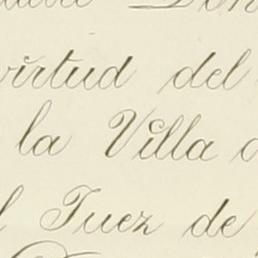 virtud del
la Villa
Juez de